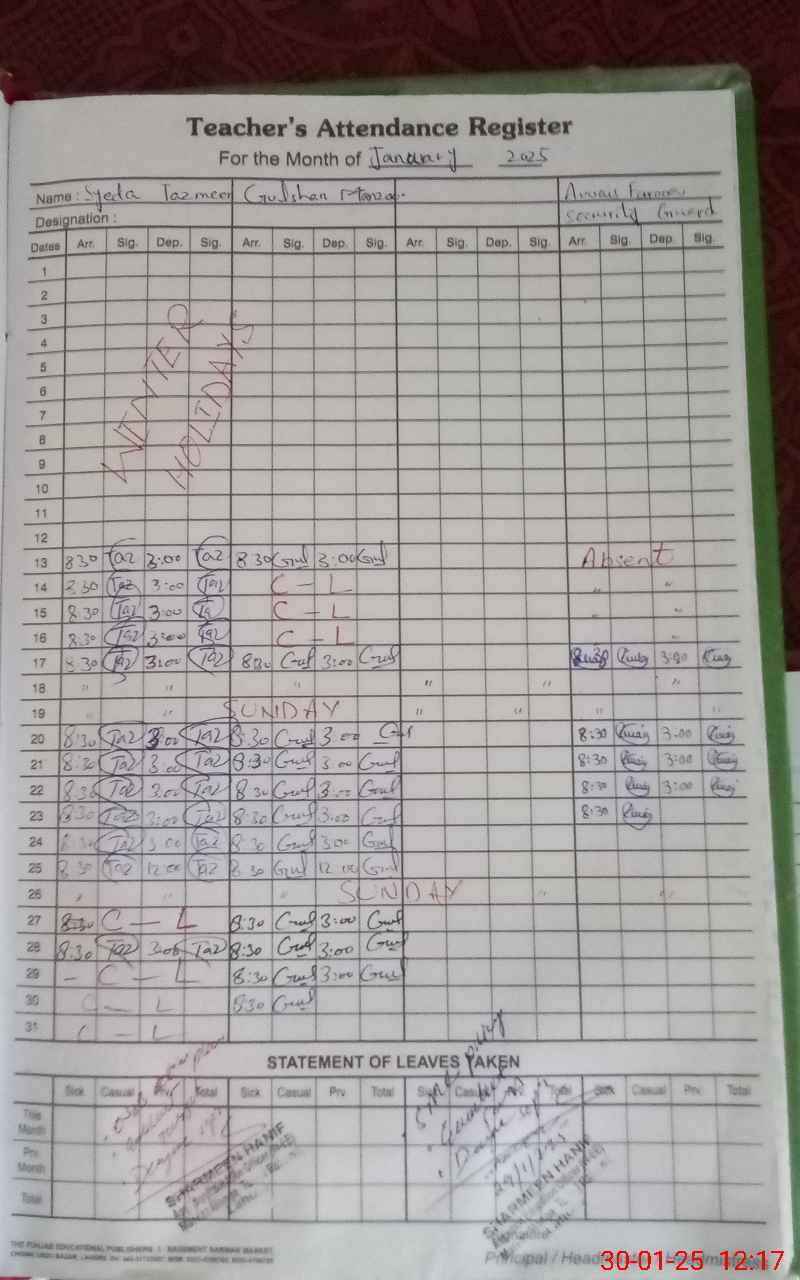 Teacher's Attendance Register
For the Month of January 2025
Name : Syeda Tazmeen Gulshan
Designation : Security Guard
Dates Arr. Sig. Dep. Sig. Arr. Sig. Dep. Sig. Arr. Sig. Dep. Sig. Arr. Sig. Dep. Sig.
1
2
3
4
5
6
7
8
9
10
11
12
WINTER
HOLIDAYS
13 8 30 Taz 3:00 Taz 8 30 Gul 3:00 Gul Absent
14 8 30 Taz 3:00 Taz C - L " "
15 8:30 Taz 3:00 Ta C - L " "
16 8:30 Taz 3:00 Taz C - L "
17 8.30 Taz 3:00 Taz 8:30 Gul 3:00 Gul 8:30 3:00
18 " " " " " "
19 " " SUNDAY " " " " "
20 8:30 Taz 3:00 Taz 8:30 Gul 3:00 Gul 8:30 3:00
21 8:30 Taz 3:00 Taz 8:30 Gul 3:00 Gul 8:30 3:00
22 8:30 Taz 3:00 Taz 8:30 Gul 3:00 Gul 8:30 3:00
23 8:30 Taz 3:00 Taz 8:30 Gul 3:00 Gul 8:30
24 8:30 Taz 3:00 Taz 8:30 Gul 3:00 Gul
25 8:30 Taz 12:00 Taz 8:30 Gul 12:00 Gul
26 " " " SUNDAY " "
27 8:30 C - L 8:30 Gul 3:00 Gul
28 8:30 Taz 3:00 Taz 8:30 Gul 3:00 Gul
29 - C - L 8:30 Gul 3:00 Gul
30 C - L 8:30 Gul
31 C - L
STATEMENT OF LEAVES TAKEN
Sick Casual Prv. Total Sick Casual Prv. Total Sick Casual Prv. Total Sick Casual Prv. Total
This Month
Prv. Month
Total
SHARMEEN HANIF
29/1/25
SHARMEEN HANIF
THE PUNJAB EDUCATIONAL PUBLISHERS
Principal / Headmaster / Headmistress
30-01-25 12:17